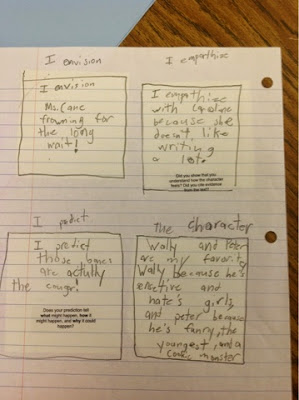 I envision
I envision
Ms. Cane
frowning for
the long
wait!
I empathize
I empathize
with Caroline
because she
doesn't, like
writing
a lot.
Did you show that you
understand how the character
feels? Did you cite evidence
from the text?
I predict
I predict
those bones
are actually
the cougr!
Does your prediction tell
what might happen, how it
might happen, and why it could
happen?
The character
Wally and Peter
are my favorite
Wally because he's
creative and
hate's girls
and peter because
he's funny, the
youngest, and a
cookie monster